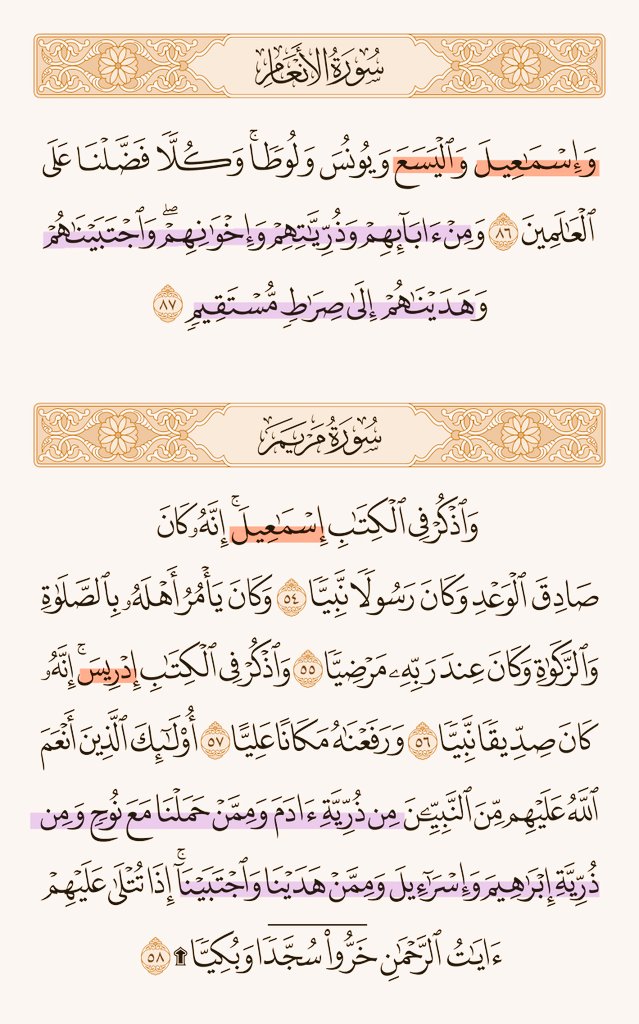 سُورَةُ الأَنْعَامِ
وَإِسْمَـٰعِيلَ وَٱلْيَسَعَ وَيُونُسَ وَلُوطًا ۚ وَكُلًّا فَضَّلْنَا عَلَى
ٱلْعَـٰلَمِينَ ٨٦ وَمِنْ ءَابَآئِهِمْ وَذُرِّيَّـٰتِهِمْ وَإِخْوَٰنِهِمْ ۖ وَٱجْتَبَيْنَـٰهُمْ
وَهَدَيْنَـٰهُمْ إِلَىٰ صِرَٰطٍ مُّسْتَقِيمٍ ٨٧
سُورَةُ مَرْيَمَ
وَٱذْكُرْ فِى ٱلْكِتَـٰبِ إِسْمَـٰعِيلَ ۚ إِنَّهُۥ كَانَ
صَادِقَ ٱلْوَعْدِ وَكَانَ رَسُولًا نَّبِيًّا ٥٤ وَكَانَ يَأْمُرُ أَهْلَهُۥ بِٱلصَّلَوٰةِ
وَٱلزَّكَوٰةِ وَكَانَ عِندَ رَبِّهِۦ مَرْضِيًّا ٥٥ وَٱذْكُرْ فِى ٱلْكِتَـٰبِ إِدْرِيسَ ۚ إِنَّهُۥ
كَانَ صِدِّيقًا نَّبِيًّا ٥٦ وَرَفَعْنَـٰهُ مَكَانًا عَلِيًّا ٥٧ أُو۟لَـٰٓئِكَ ٱلَّذِينَ أَنْعَمَ
ٱللَّهُ عَلَيْهِم مِّنَ ٱلنَّبِيِّـۧنَ مِن ذُرِّيَّةِ ءَادَمَ وَمِمَّنْ حَمَلْنَا مَعَ نُوحٍ وَمِن
ذُرِّيَّةِ إِبْرَٰهِيمَ وَإِسْرَٰٓءِيلَ وَمِمَّنْ هَدَيْنَا وَٱجْتَبَيْنَآ ۚ إِذَا تُتْلَىٰ عَلَيْهِمْ
ءَايَـٰتُ ٱلرَّحْمَـٰنِ خَرُّوا۟ سُجَّدًا وَبُكِيًّا ۩ ٥٨